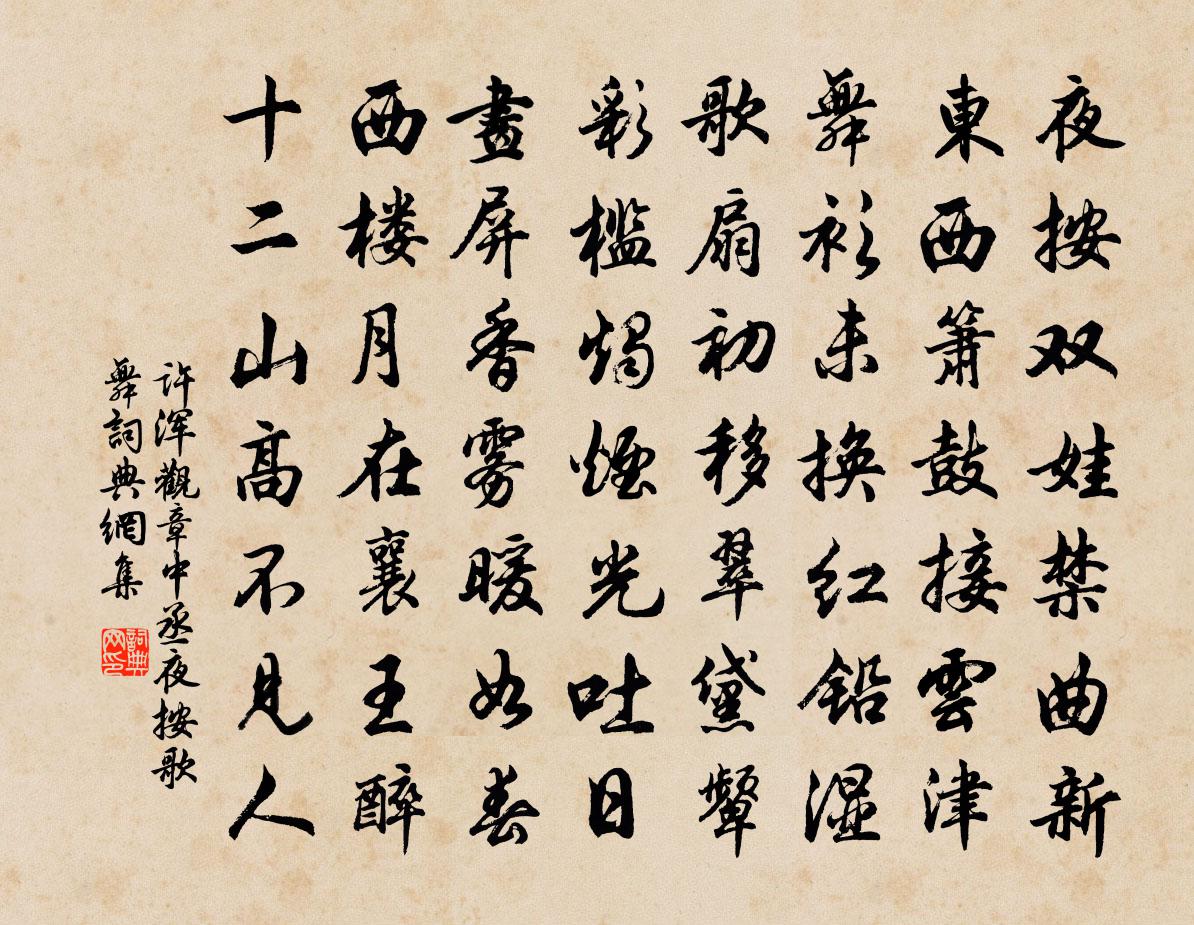 夜按双娃禁曲新
東西簫鼓接雲津
舞衫未換红铅湿
歌扇初移翠黛顰
彩檻燭煙光吐日
畫屏香雾暖如春
西楼月在襄王醉
十二山高不見人
許浑觀章中丞夜按歌
舞詞典網集
詞典网印